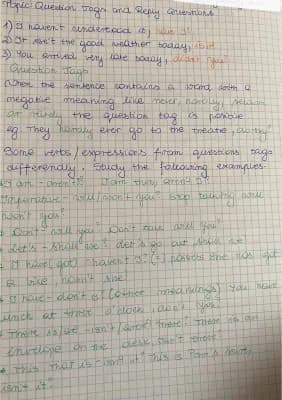 Topic: Question Tags and Reply Questions
1) I haven't understood it, have I?
2) It isn't the good weather today, is it?
3) You arrived very late today, didn't you?
Question Tags
When the sentence contains a word with a
negative meaning like never, hardly, seldom
or rarely the question tag is positive
eg. They hardly ever go to the theatre, do they?
Some verbs/expressions from questions tags
differently. Study the following examples.
I am - aren't I? I am thin, aren't I?
Imperative - will/won't you? Stop talking will
won't you?
Don't - will you? Don't talk will you?
Let's - shall we? Let's go out shall we
I have (got) - haven't I? (=) possess She has got
a bike, hasn't she?
I have - don't I? (other meanings) You have
lunch at three o'clock, don't you?
There is/are - isn't/aren't there? There is an
envelope on the desk, isn't there?
This/that is - isn't it? This is Pam's
isn't it?